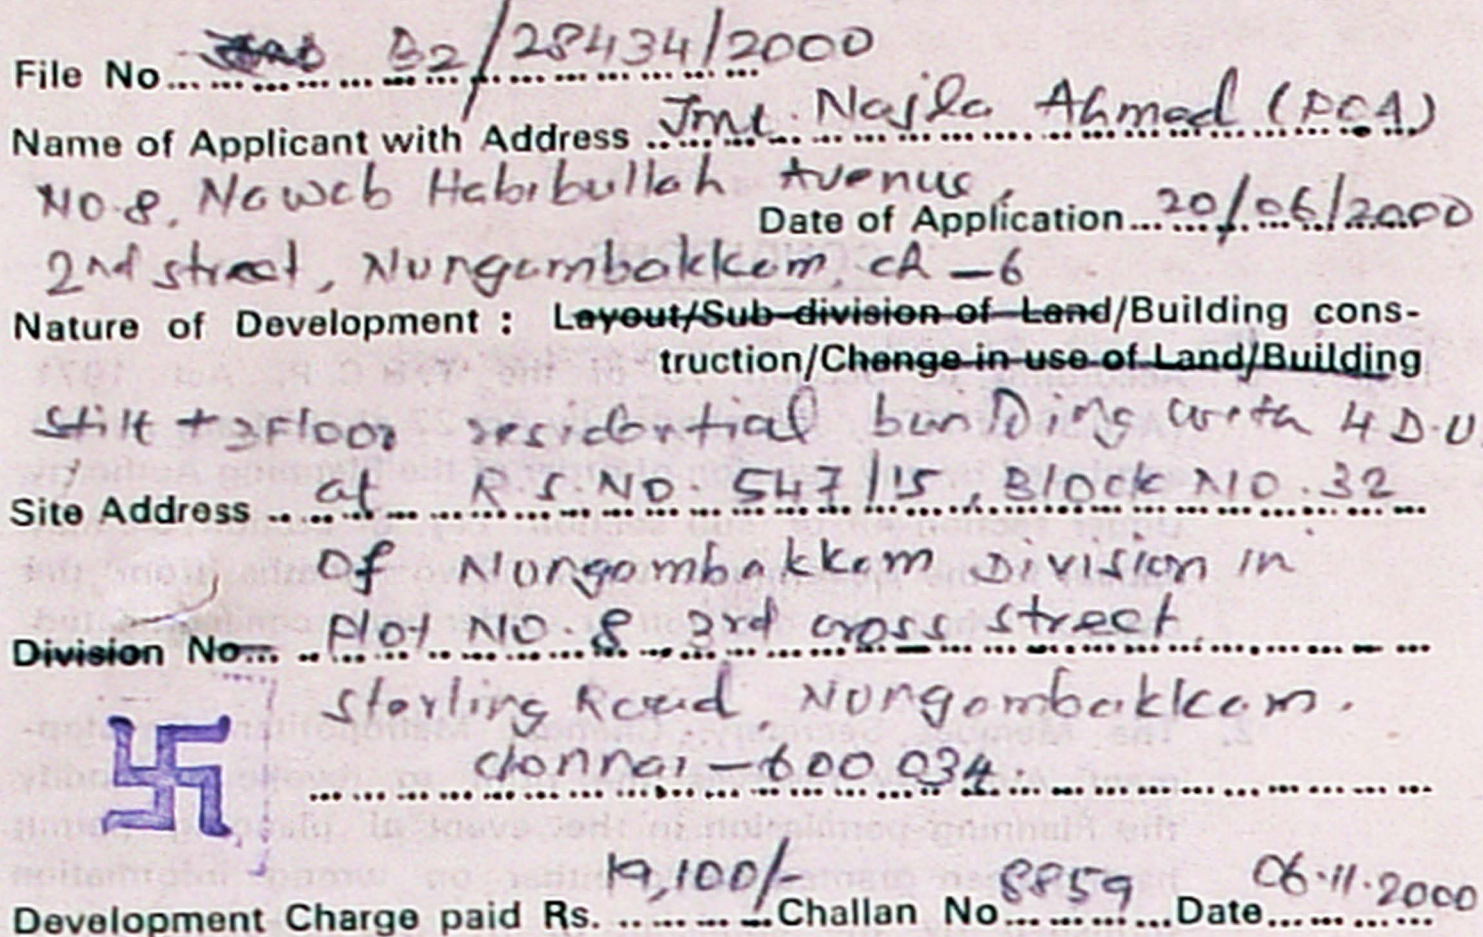 File No. B2/28434/2000
Name of Applicant with Address Tmt. Najla Ahmad (PCA)
No.8, Nawab Habibullah Avenue,
Date of Application 20/06/2000
2nd street, Nungambakkam, ch-6
Nature of Development : Layout/Sub-division of Land/Building cons-
truction/Change in use of Land/Building
Stilt + 3Floor residential building with 4 D.U
Site Address at R.S.No. 547/15, Block No. 32
of Nungambakkam Division in
Division No. Plot No. 8, 3rd cross street
Sterling Road, Nungambakkam.
Chennai-600 034.
Development Charge paid Rs. 19,100/- Challan No 8859 Date 06.11.2000